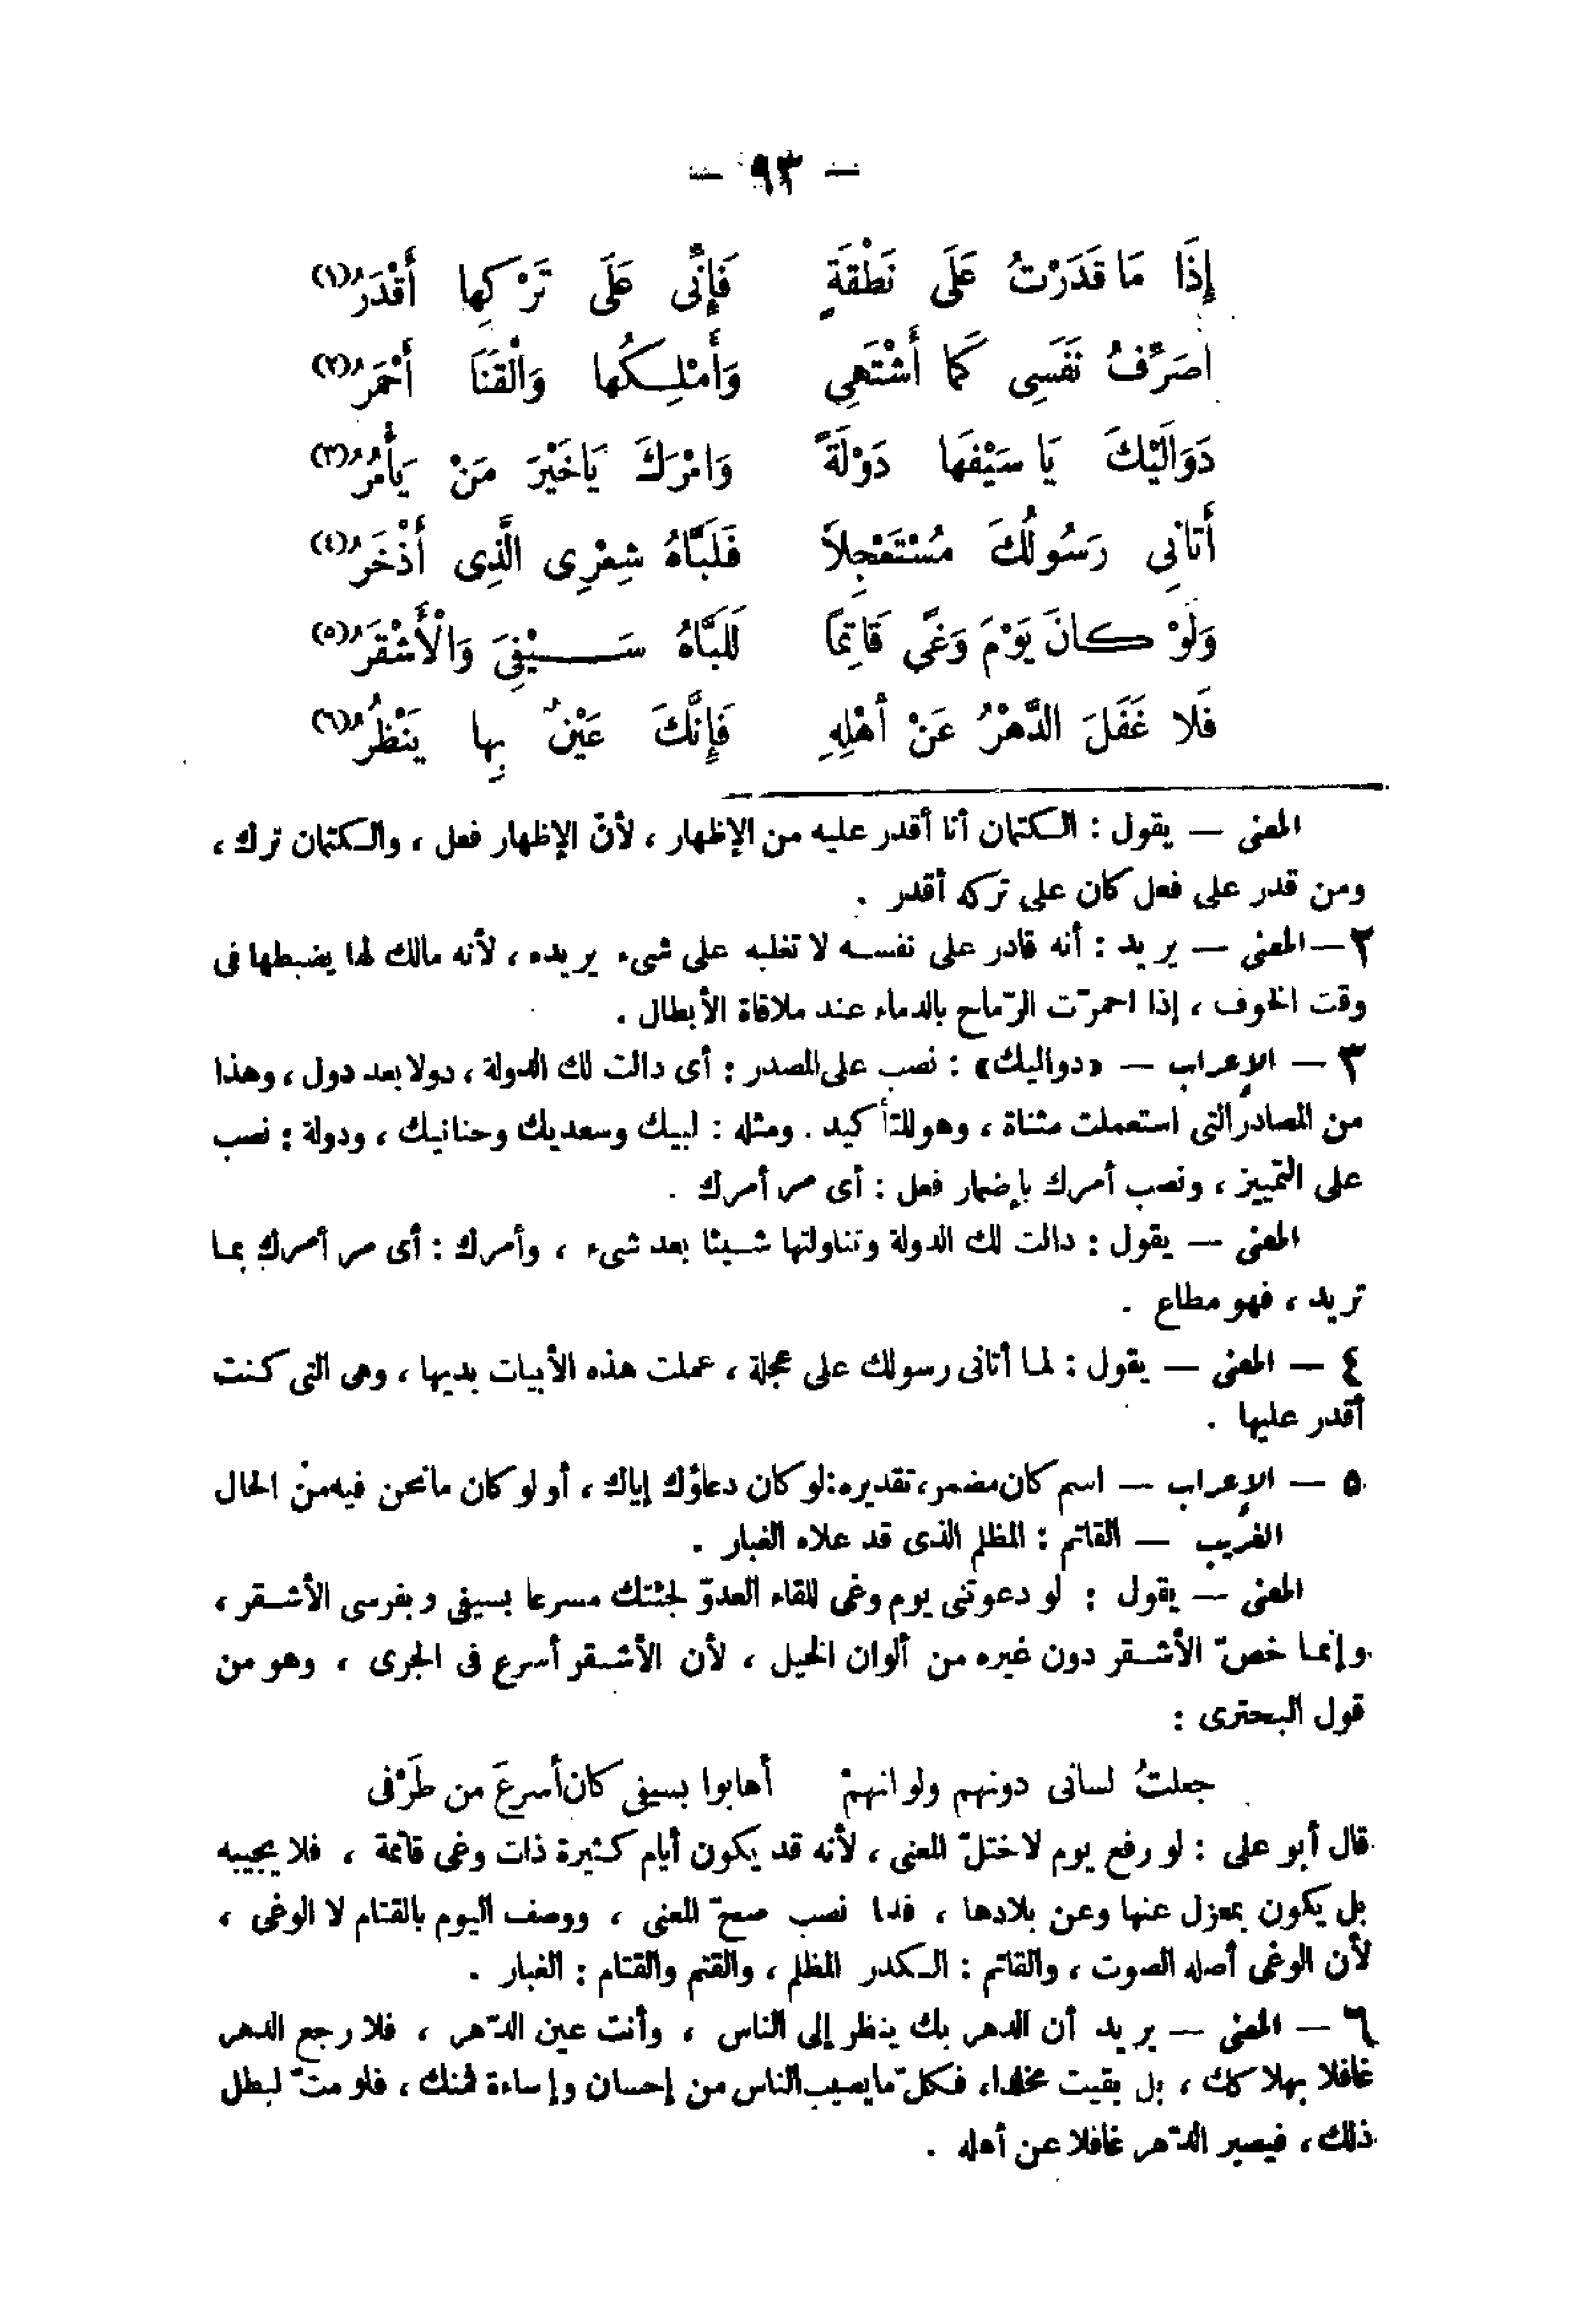 — ٩٣ —
إِذَا مَا قَدَرْتُ عَلَى نَطْقَةٍ فَإِنِّى عَلَى تَرْكِها أَقْدَرُ(١)
اصَرِّفُ نَفْسِى كَمَا أَشْتَهِي وَأَمْلِكُها وَالْقَنَا أَحْمَرُ(٢)
دَوَالَيْكَ يَا سَيْفَهَا دَوْلَةً وَامْرَكَ يَاخَيْرَ مَنْ يَأْمُرُ(٣)
أَتانِي رَسُولُكَ مُسْتَعْجِلاً فَلَبَّاهُ شِعْرِى الَّذِى أَذْخَرُ(٤)
وَلَوْ كانَ يَوْمَ وَغًى قَاتِمًا لَلَبَّاهُ سَيْفِىَ وَالْأَشْقَرُ(٥)
فَلا غَفَلَ الدَّهْرُ عَنْ أهْلِهِ فَإِنَّكَ عَيْنٌ بِها يَنْظُرُ(٦)
المعنى — يقول : الكتمان أنا أقدر عليه من الإظهار ، لأنّ الإظهار فعل ، والكتمان ترك ،
ومن قدر على فعل كان على تركه أقدر .
٢ — المعنى — يريد : أنه قادر على نفسه لا تغلبه على شىء يريده ، لأنه مالك لها يضبطها فى
وقت الخوف ، إذا احمرّت الرّماح بالدماء عند ملاقاة الأبطال .
٣ — الإعراب — «دواليك» : نصب على المصدر : أى دالت لك الدولة ، دولا بعد دول ، وهذا
من المصادر التى استعملت مثناة ، وهو للتأكيد . ومثله : لبيك وسعديك وحنانيك ، ودولة : نصب
على التمييز ، ونصب أمرك بإضمار فعل : أى مر أمرك .
المعنى — يقول : دالت لك الدولة وتناولتها شيئا بعد شىء ، وأمرك : أى مر أمرك بما
تريد ، فهو مطاع .
٤ — المعنى — يقول : لما أتانى رسولك على عجلة ، عملت هذه الأبيات بديها ، وهى التى كنت
أقدر عليها .
٥ — الإعراب — اسم كان مضمر، تقديره: لو كان دعاؤك إياك ، أو لو كان مانحن فيه من الحال
الغريب — القاتم : المظلم الذى قد علاه الغبار .
المعنى — يقول : لو دعوتنى يوم وغى للقاء العدوّ لجئتك مسرعا بسيفى وبفرسى الأشقر ،
وإنما خصّ الأشقر دون غيره من ألوان الخيل ، لأن الأشقر أسرع فى الجرى ، وهو من
قول البحترى :
جعلتُ لسانى دونهم ولو انهمْ أهابوا بسيفى كان أسرعَ من طَرْفى
قال أبو على : لو رفع يوم لاختلّ المعنى ، لأنه قد يكون أيام كثيرة ذات وغى قاتمة ، فلا يجيبه
بل يكون بمعزل عنها وعن بلادها ، فلما نصب صحّ المعنى ، ووصف اليوم بالقتام لا الوغى ،
لأن الوغى أصله الصوت ، والقاتم : الكدر المظلم ، والقتم والقتام : الغبار .
٦ — المعنى — يريد أن الدهر بك ينظر إلى الناس ، وأنت عين الدّهر ، فلا رجع الدهر
غافلا بهلاكك ، بل بقيت مخلدا، فكلّ مايصيب الناس من إحسان وإساءة فمنك ، فلو متّ لبطل
ذلك ، فيصير الدّهر غافلا عن أهله .